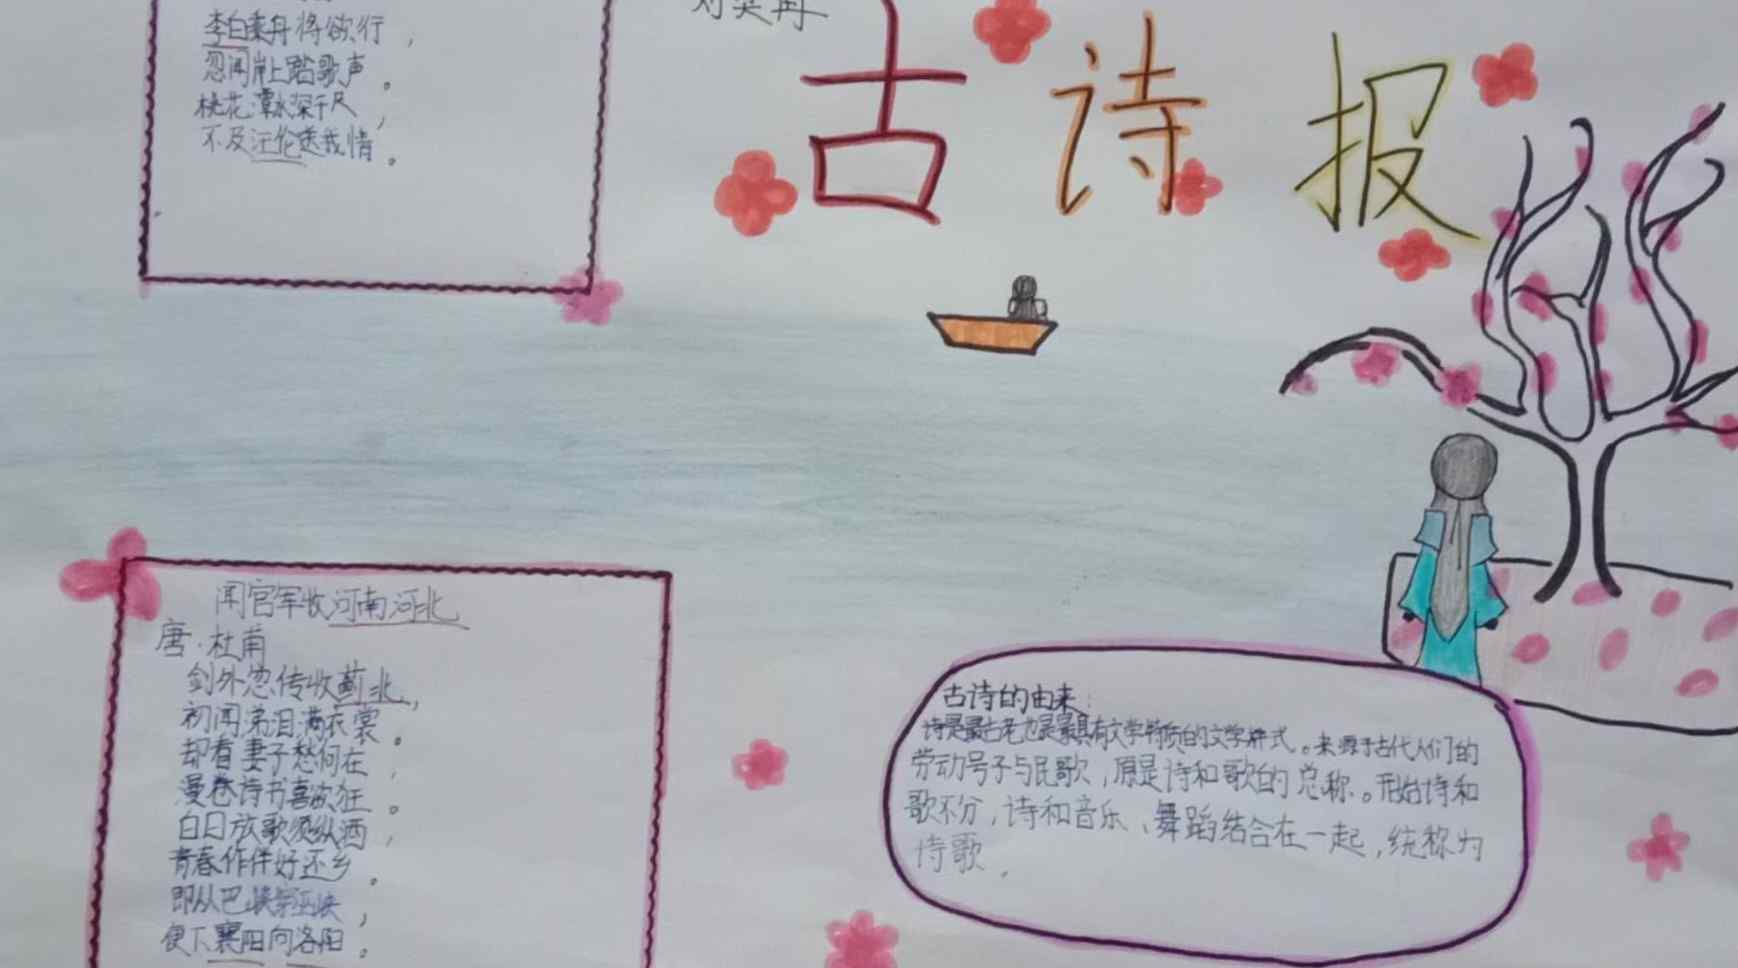 李白乘舟将欲行，
忽闻岸上踏歌声。
桃花潭水深千尺，
不及汪伦送我情。
古诗报
闻官军收河南河北
唐·杜甫
剑外忽传收蓟北，
初闻涕泪满衣裳。
却看妻子愁何在，
漫卷诗书喜欲狂。
白日放歌须纵酒，
青春作伴好还乡。
即从巴峡穿巫峡，
便下襄阳向洛阳。
古诗的由来：
诗是最古老也是最具有文学特质的文学样式。来源于古代人们的
劳动号子与民歌，原是诗和歌的总称。开始诗和
歌不分，诗和音乐、舞蹈结合在一起，统称为
诗歌。